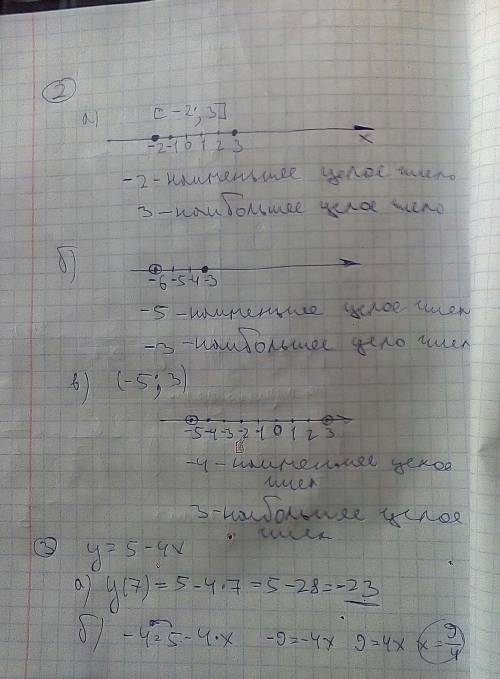 2
а) [-2; 3]
-2 -1 0 1 2 3 x
-2 - наименьшее целое число
3 - наибольшее целое число
б)
-6 -5 -4 -3
-5 - наименьшее целое число
-3 - наибольшее цело числ
в) (-5; 3)
-5 -4 -3 -2 -1 0 1 2 3
-4 - наименьшее целое
числ
3 - наибольшее целое
числ
3 y = 5 - 4x
а) y(7) = 5 - 4·7 = 5 - 28 = -23
б) -4 = 5 - 4·x -9 = -4x 9 = 4x x = 9/4